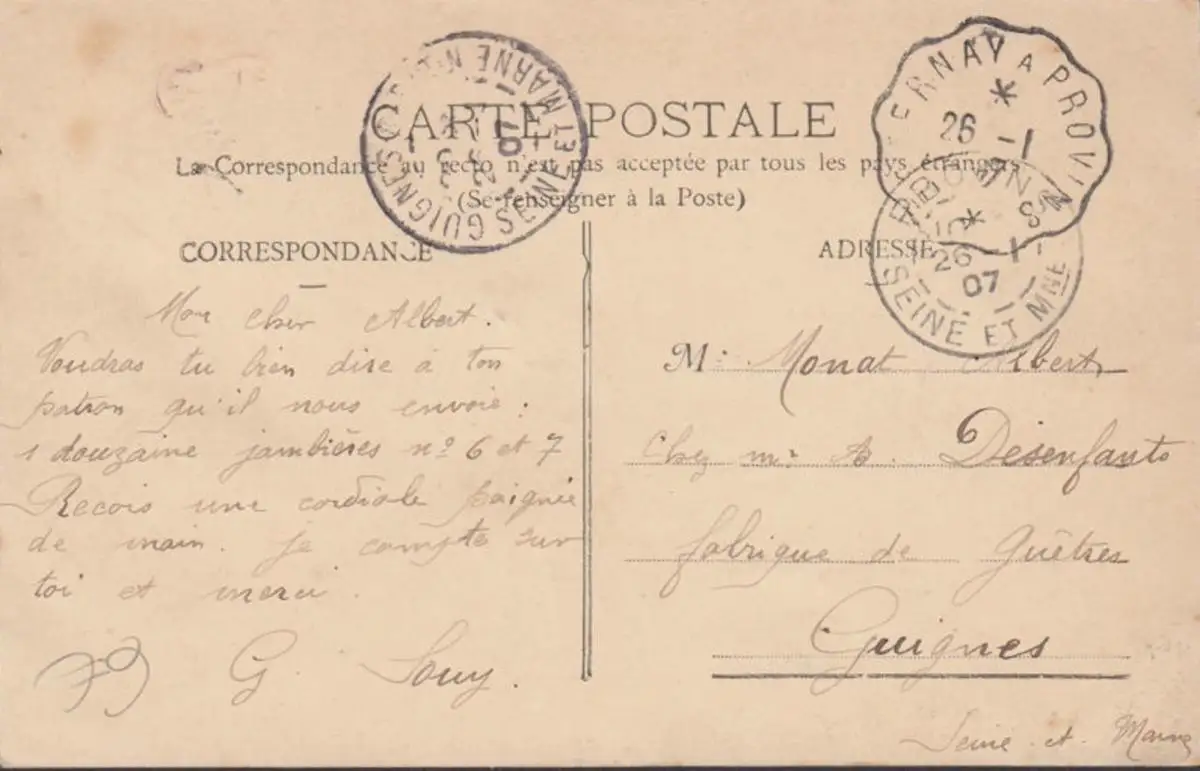 CARTE POSTALE
La Correspondance au recto n'est pas acceptée par tous les pays étrangers
(Se renseigner à la Poste)
CORRESPONDANCE
ADRESSE
GUIGNES
SEINE ET MARNE
07
ERNAY A PROVIN
26 -1
26 -1
07
SEINE ET MNE
Mon cher Albert.
Voudras tu bien dire à ton
patron qu'il nous envoie :
1 douzaine jambières nº 6 et 7
Recois une cordiale poignée
de main. Je compte sur
toi et merci.
G.
M: Monat Albert
Chez mr A. Désenfants
fabrique de Guêtres
Guignes
Seine et Marne